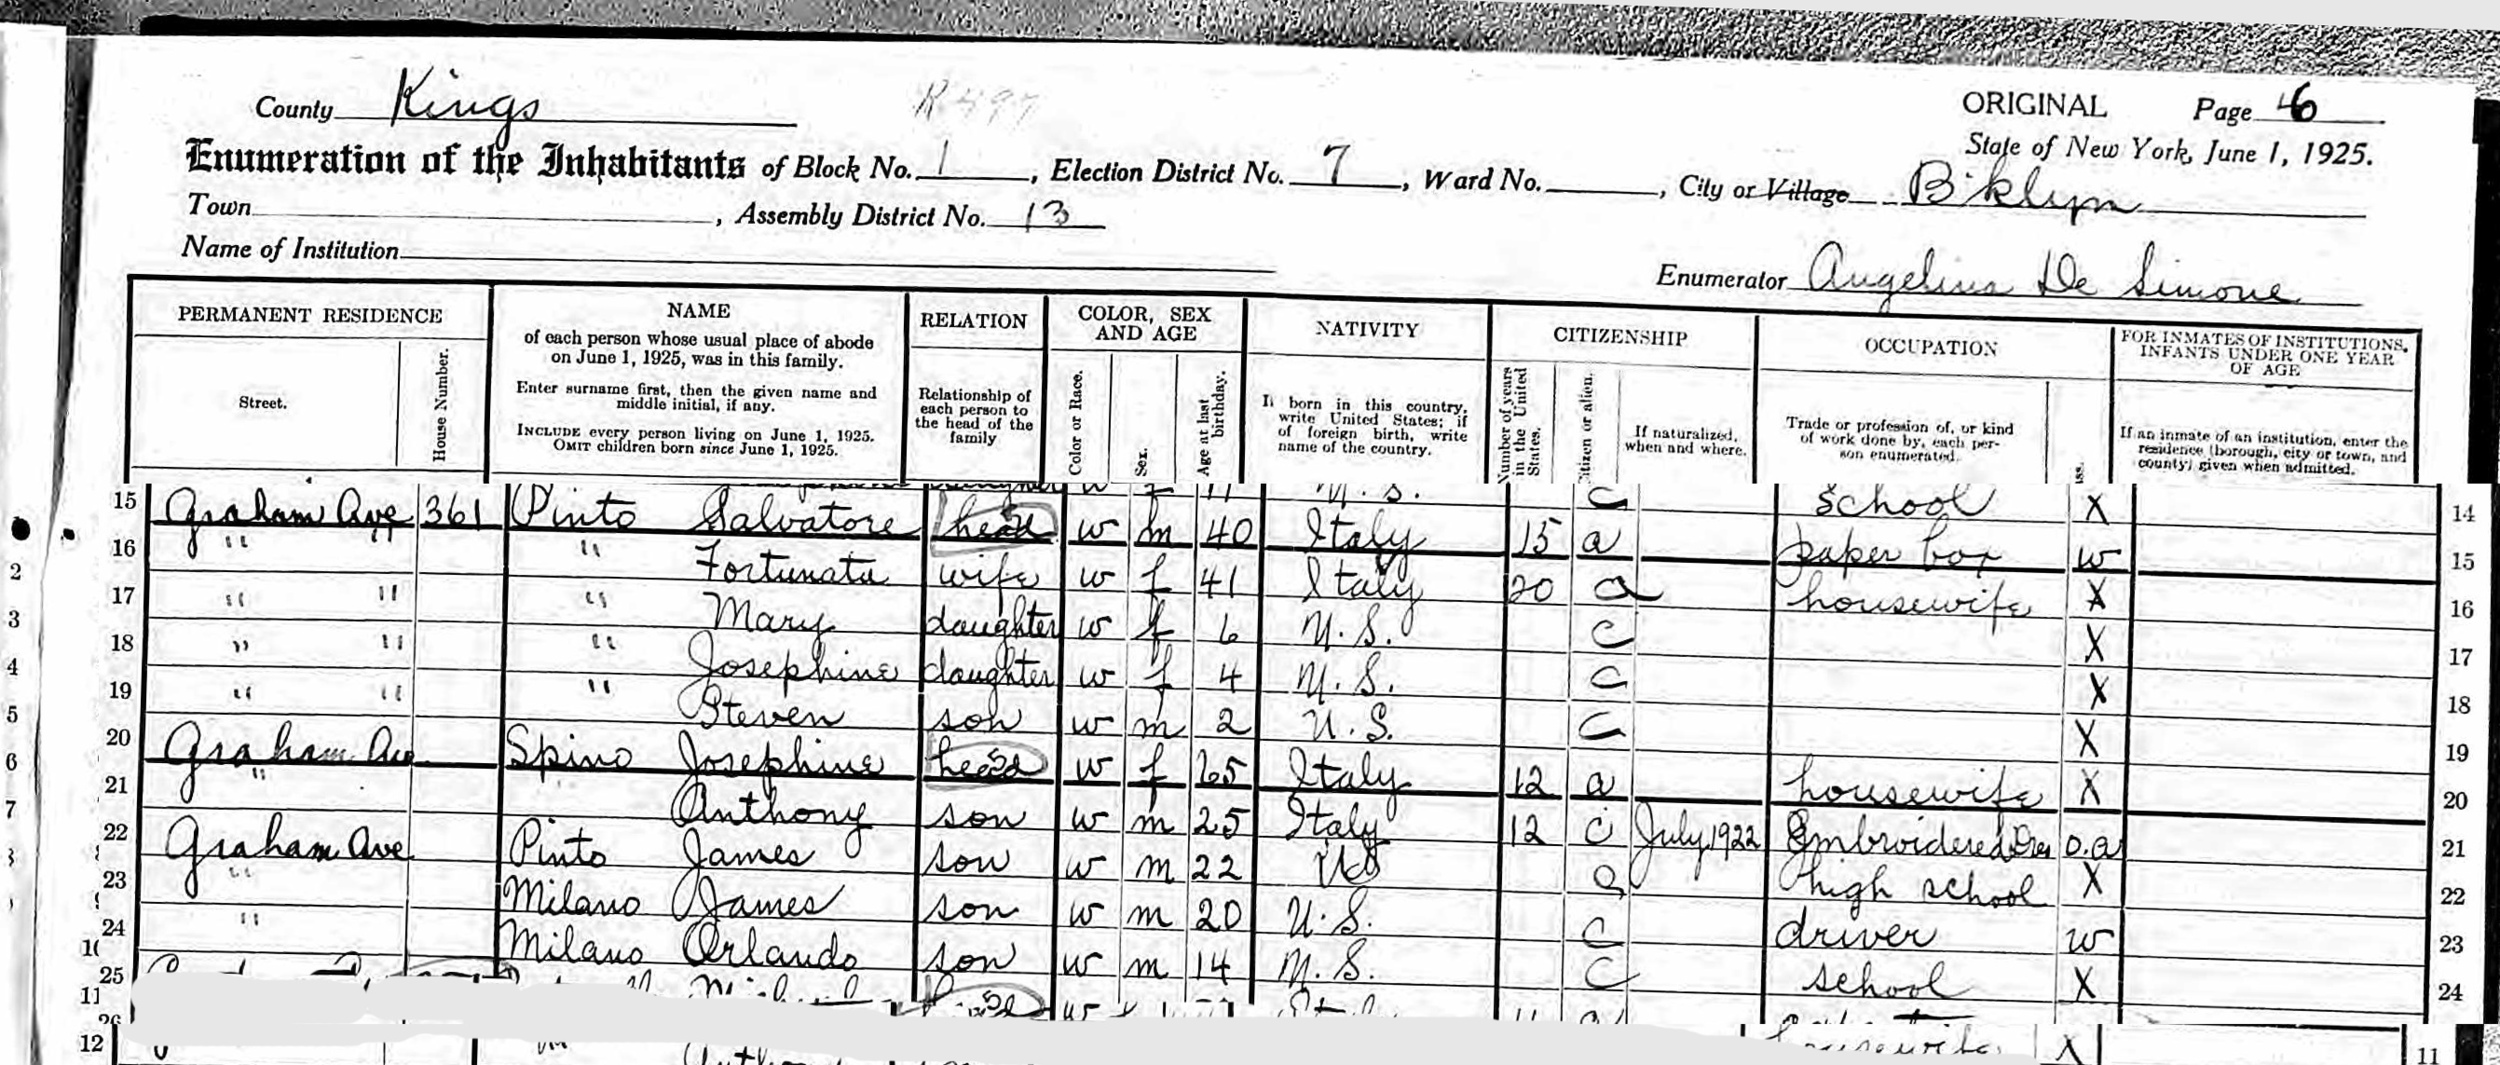 County Kings R 497 ORIGINAL Page 6
Enumeration of the Inhabitants of Block No. 1, Election District No. 7, Ward No. , City or Village B'klyn State of New York, June 1, 1925.
Town , Assembly District No. 13
Name of Institution
Enumerator Angelina De Simone
PERMANENT RESIDENCE NAME RELATION COLOR, SEX AND AGE NATIVITY CITIZENSHIP OCCUPATION FOR INMATES OF INSTITUTIONS, INFANTS UNDER ONE YEAR OF AGE
Street. House Number. of each person whose usual place of abode on June 1, 1925, was in this family. Enter surname first, then the given name and middle initial, if any. INCLUDE every person living on June 1, 1925. OMIT children born since June 1, 1925. Relationship of each person to the head of the family Color or Race. Sex. Age at last birthday. If born in this country, write United States; if of foreign birth, write name of the country. Number of years in the United States. Citizen or alien. If naturalized, when and where. Trade or profession of, or kind of work done by, each person enumerated. If an inmate of an institution, enter the residence (borough, city or town, and county) given when admitted.
w f 11 U. S. C school X 14
15 Graham Ave 361 Pinto Salvatore head w m 40 Italy 15 a paper box w 15
16 " " " Fortunata wife w f 41 Italy 20 a housewife X 16
17 " " " Mary daughter w f 6 U. S. C X 17
18 " " " Josephine daughter w f 4 U. S. C X 18
19 " " " Steven son w m 2 U. S. C X 19
20 Graham Ave Spino Josephine head w f 65 Italy 12 a housewife X 20
21 " Anthony son w m 25 Italy 12 C July 1922 Embroidered o.a 21
22 Graham Ave Pinto James son w m 22 US C high school X 22
23 " Milano James son w m 20 U. S. C driver w 23
24 " Milano Orlando son w m 14 U. S. C school X 24
25 head w
12 housewife X 11